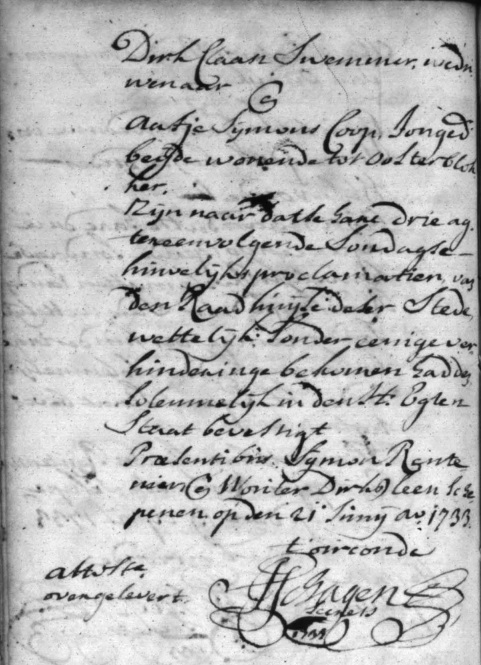 Dirk Claasz Swemmer, wedu
wenaar
&
Aatje Symons Coop, Jonged
beijde wonende tot Oosterblok
ker,
Zijn naar dat se haar drie ag
tereenvolgende Sondagse
huwelijks proclamatien, van
den Raadhuijse deser Stede,
wettelijk, sonder eenige ver
hinderinge bekomen hadden
solemnelijk in den H: Egten
Staat bevestigt
Præsentibus Symon Rente
niers & Wouter Dirksz Leen Sche
penen, op den 21 Junij Ao. 1733.
t'oirconde
attoste
overgelevert.
Secrets